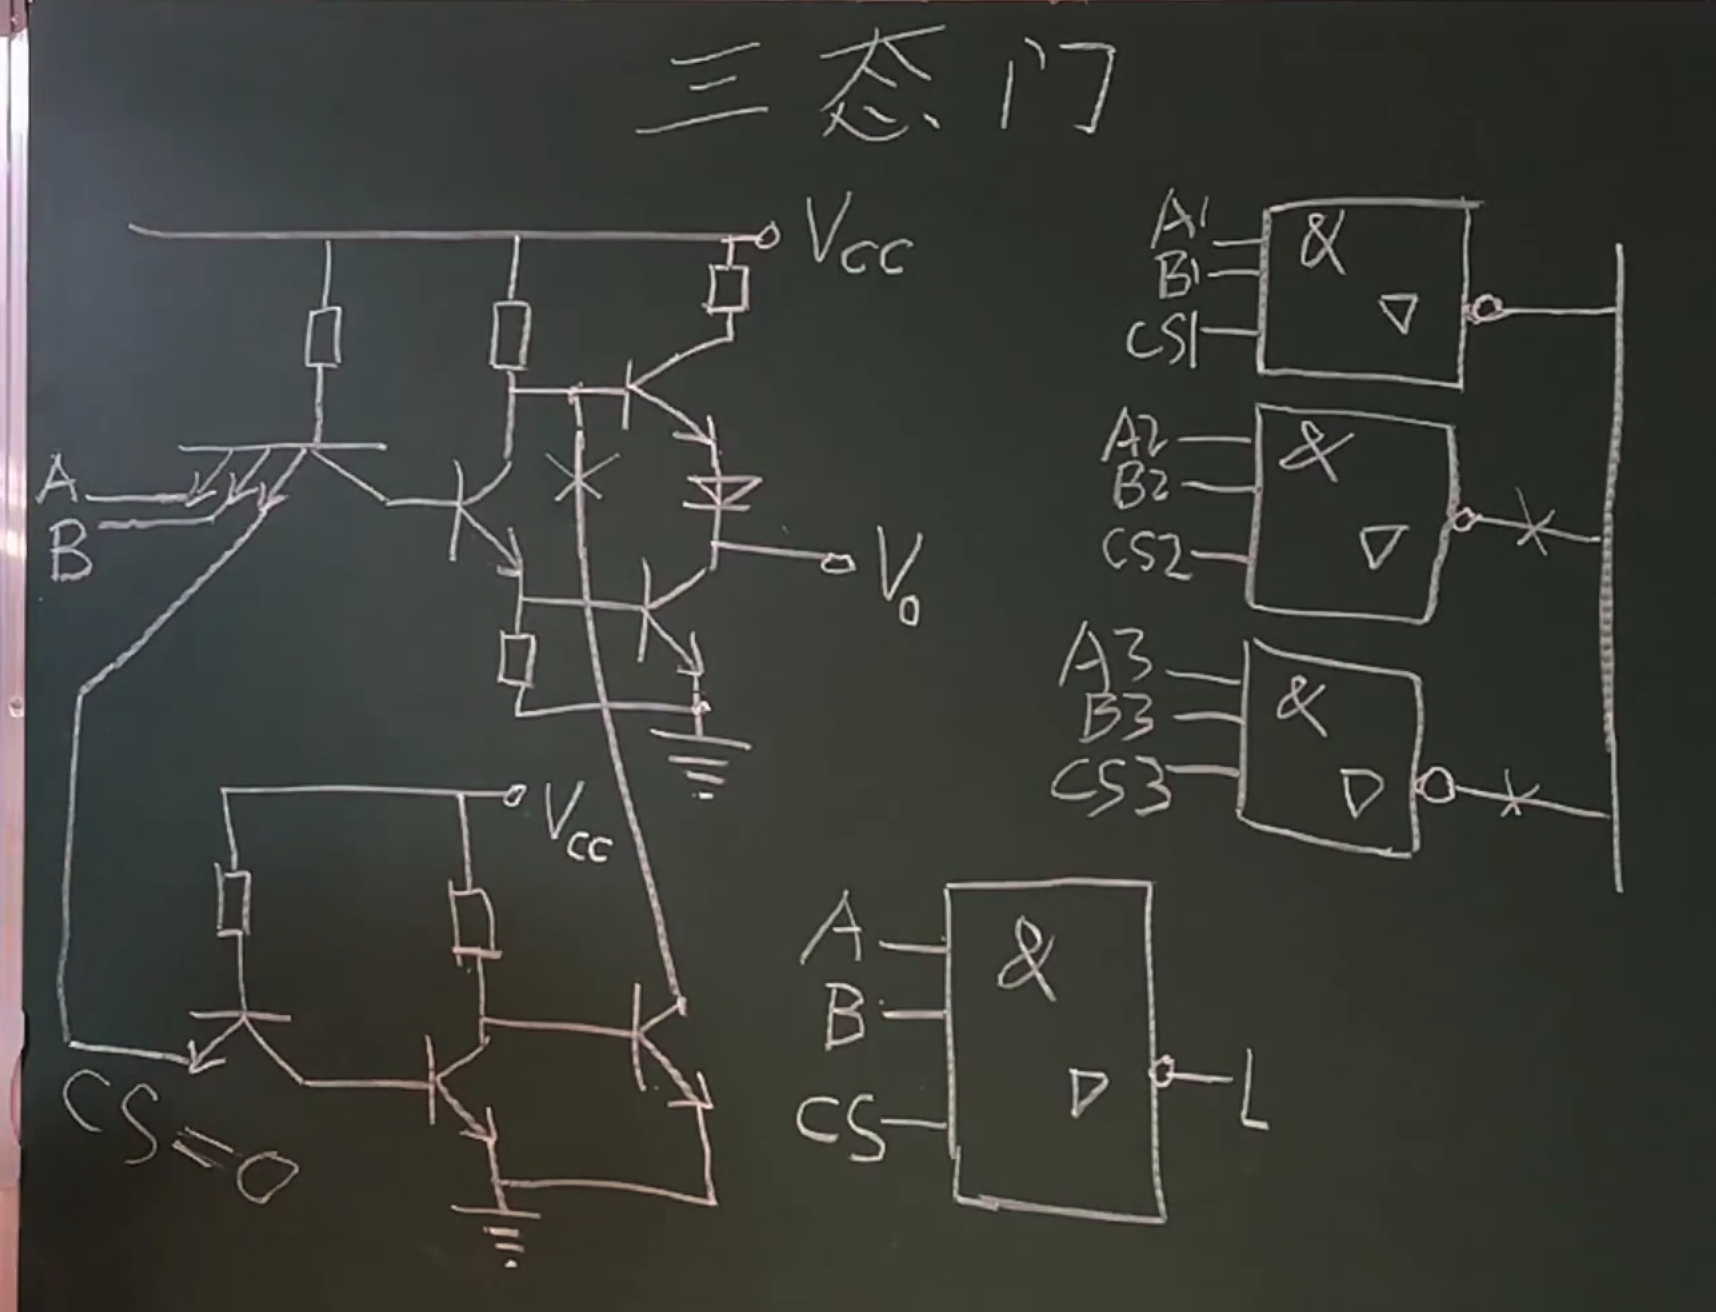 三态门
VCC
A
B
V0
VCC
CS=0
A1
B1
CS1
&
A2
B2
CS2
&
A3
B3
CS3
&
A
B
CS
&
L